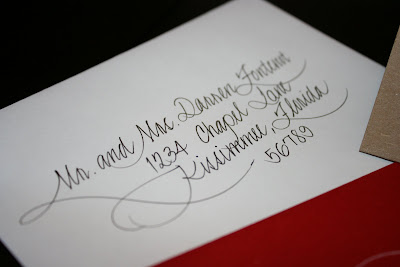 Mr. and Mrs. Darren Fontenot
1234 Chapel Lane
Kissimmee, Florida
56789